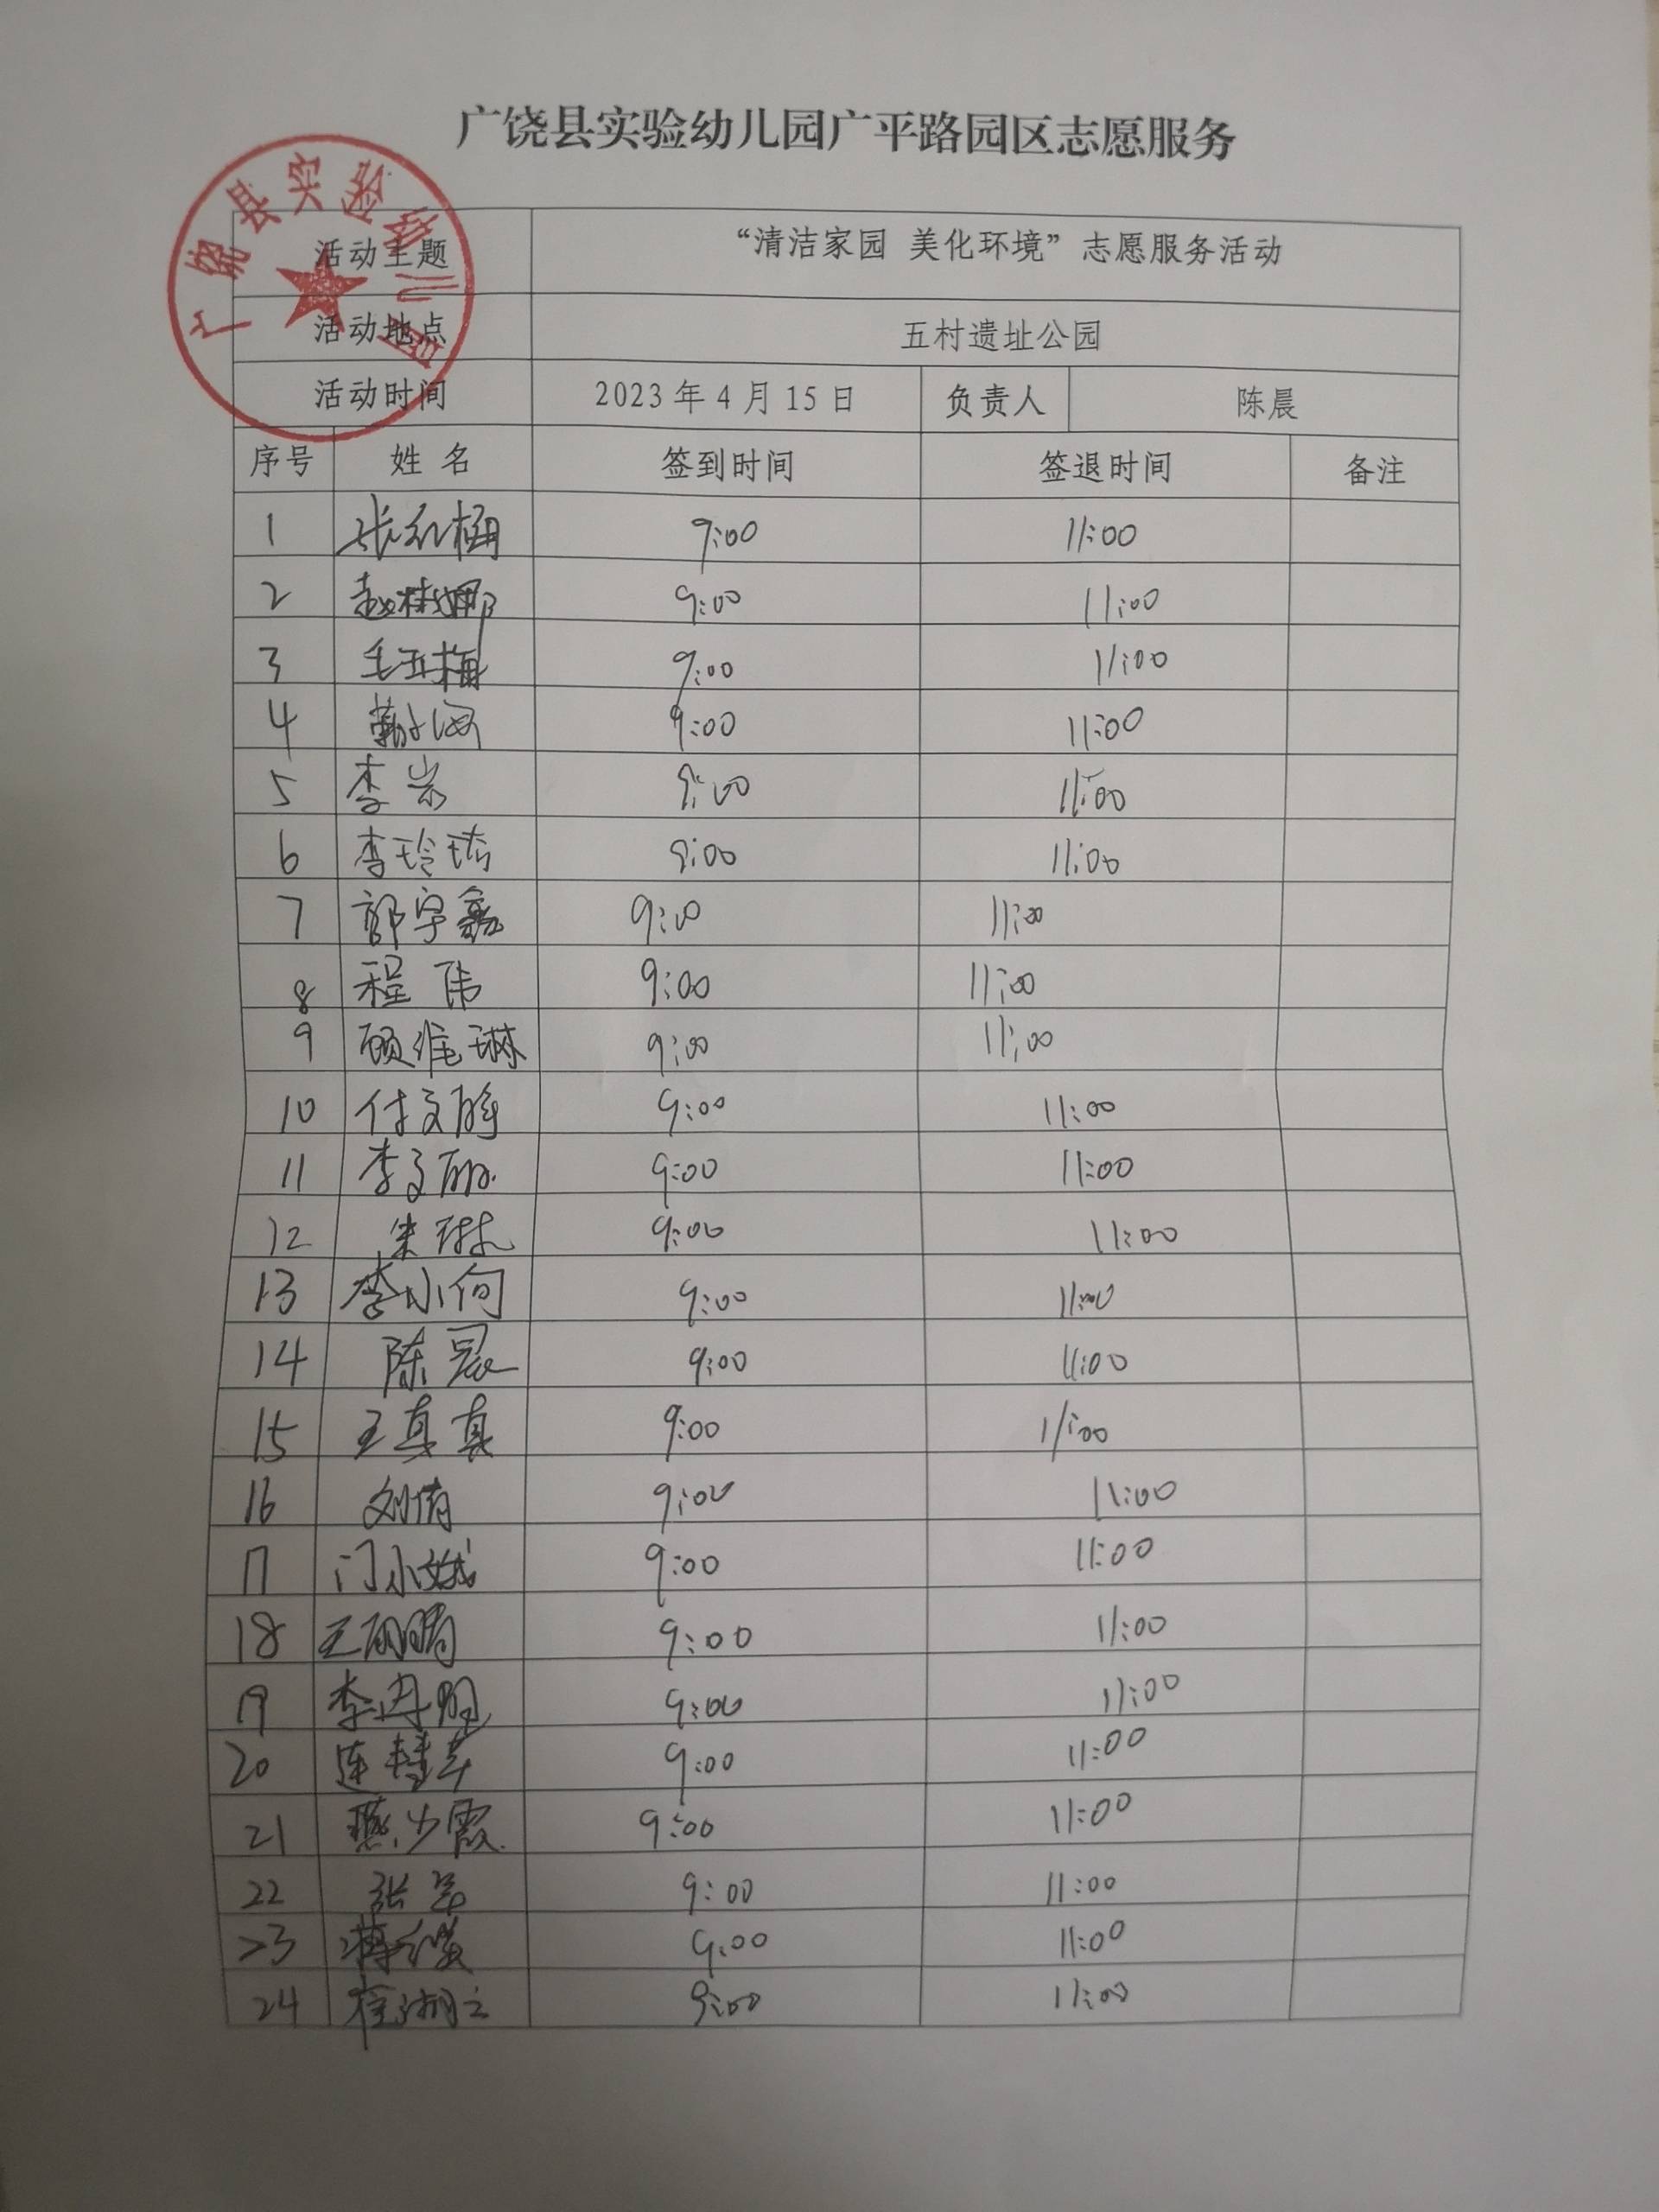 广饶县实验幼儿园广平路园区志愿服务
广饶县实验幼儿园
活动主题 “清洁家园 美化环境”志愿服务活动
活动地点 五村遗址公园
活动时间 2023年4月15日 负责人 陈晨
序号 姓名 签到时间 签退时间 备注
1 张红梅 9:00 11:00
2 赵娜 9:00 11:00
3 毛玉梅 9:00 11:00
4 9:00 11:00
5 李岩 9:00 11:00
6 李玲琦 9:00 11:00
7 郭宇鑫 9:00 11:00
8 程伟 9:00 11:00
9 顾维琳 9:00 11:00
10 付文静 9:00 11:00
11 李文丽 9:00 11:00
12 朱琳 9:00 11:00
13 李小何 9:00 11:00
14 陈晨 9:00 11:00
15 王真真 9:00 11:00
16 刘倩 9:00 11:00
17 门小娥 9:00 11:00
18 王丽娟 9:00 11:00
19 李冉冉 9:00 11:00
20 连 9:00 11:00
21 燕少霞 9:00 11:00
22 张 9:00 11:00
23 9:00 11:00
24 崔湖云 9:00 11:00